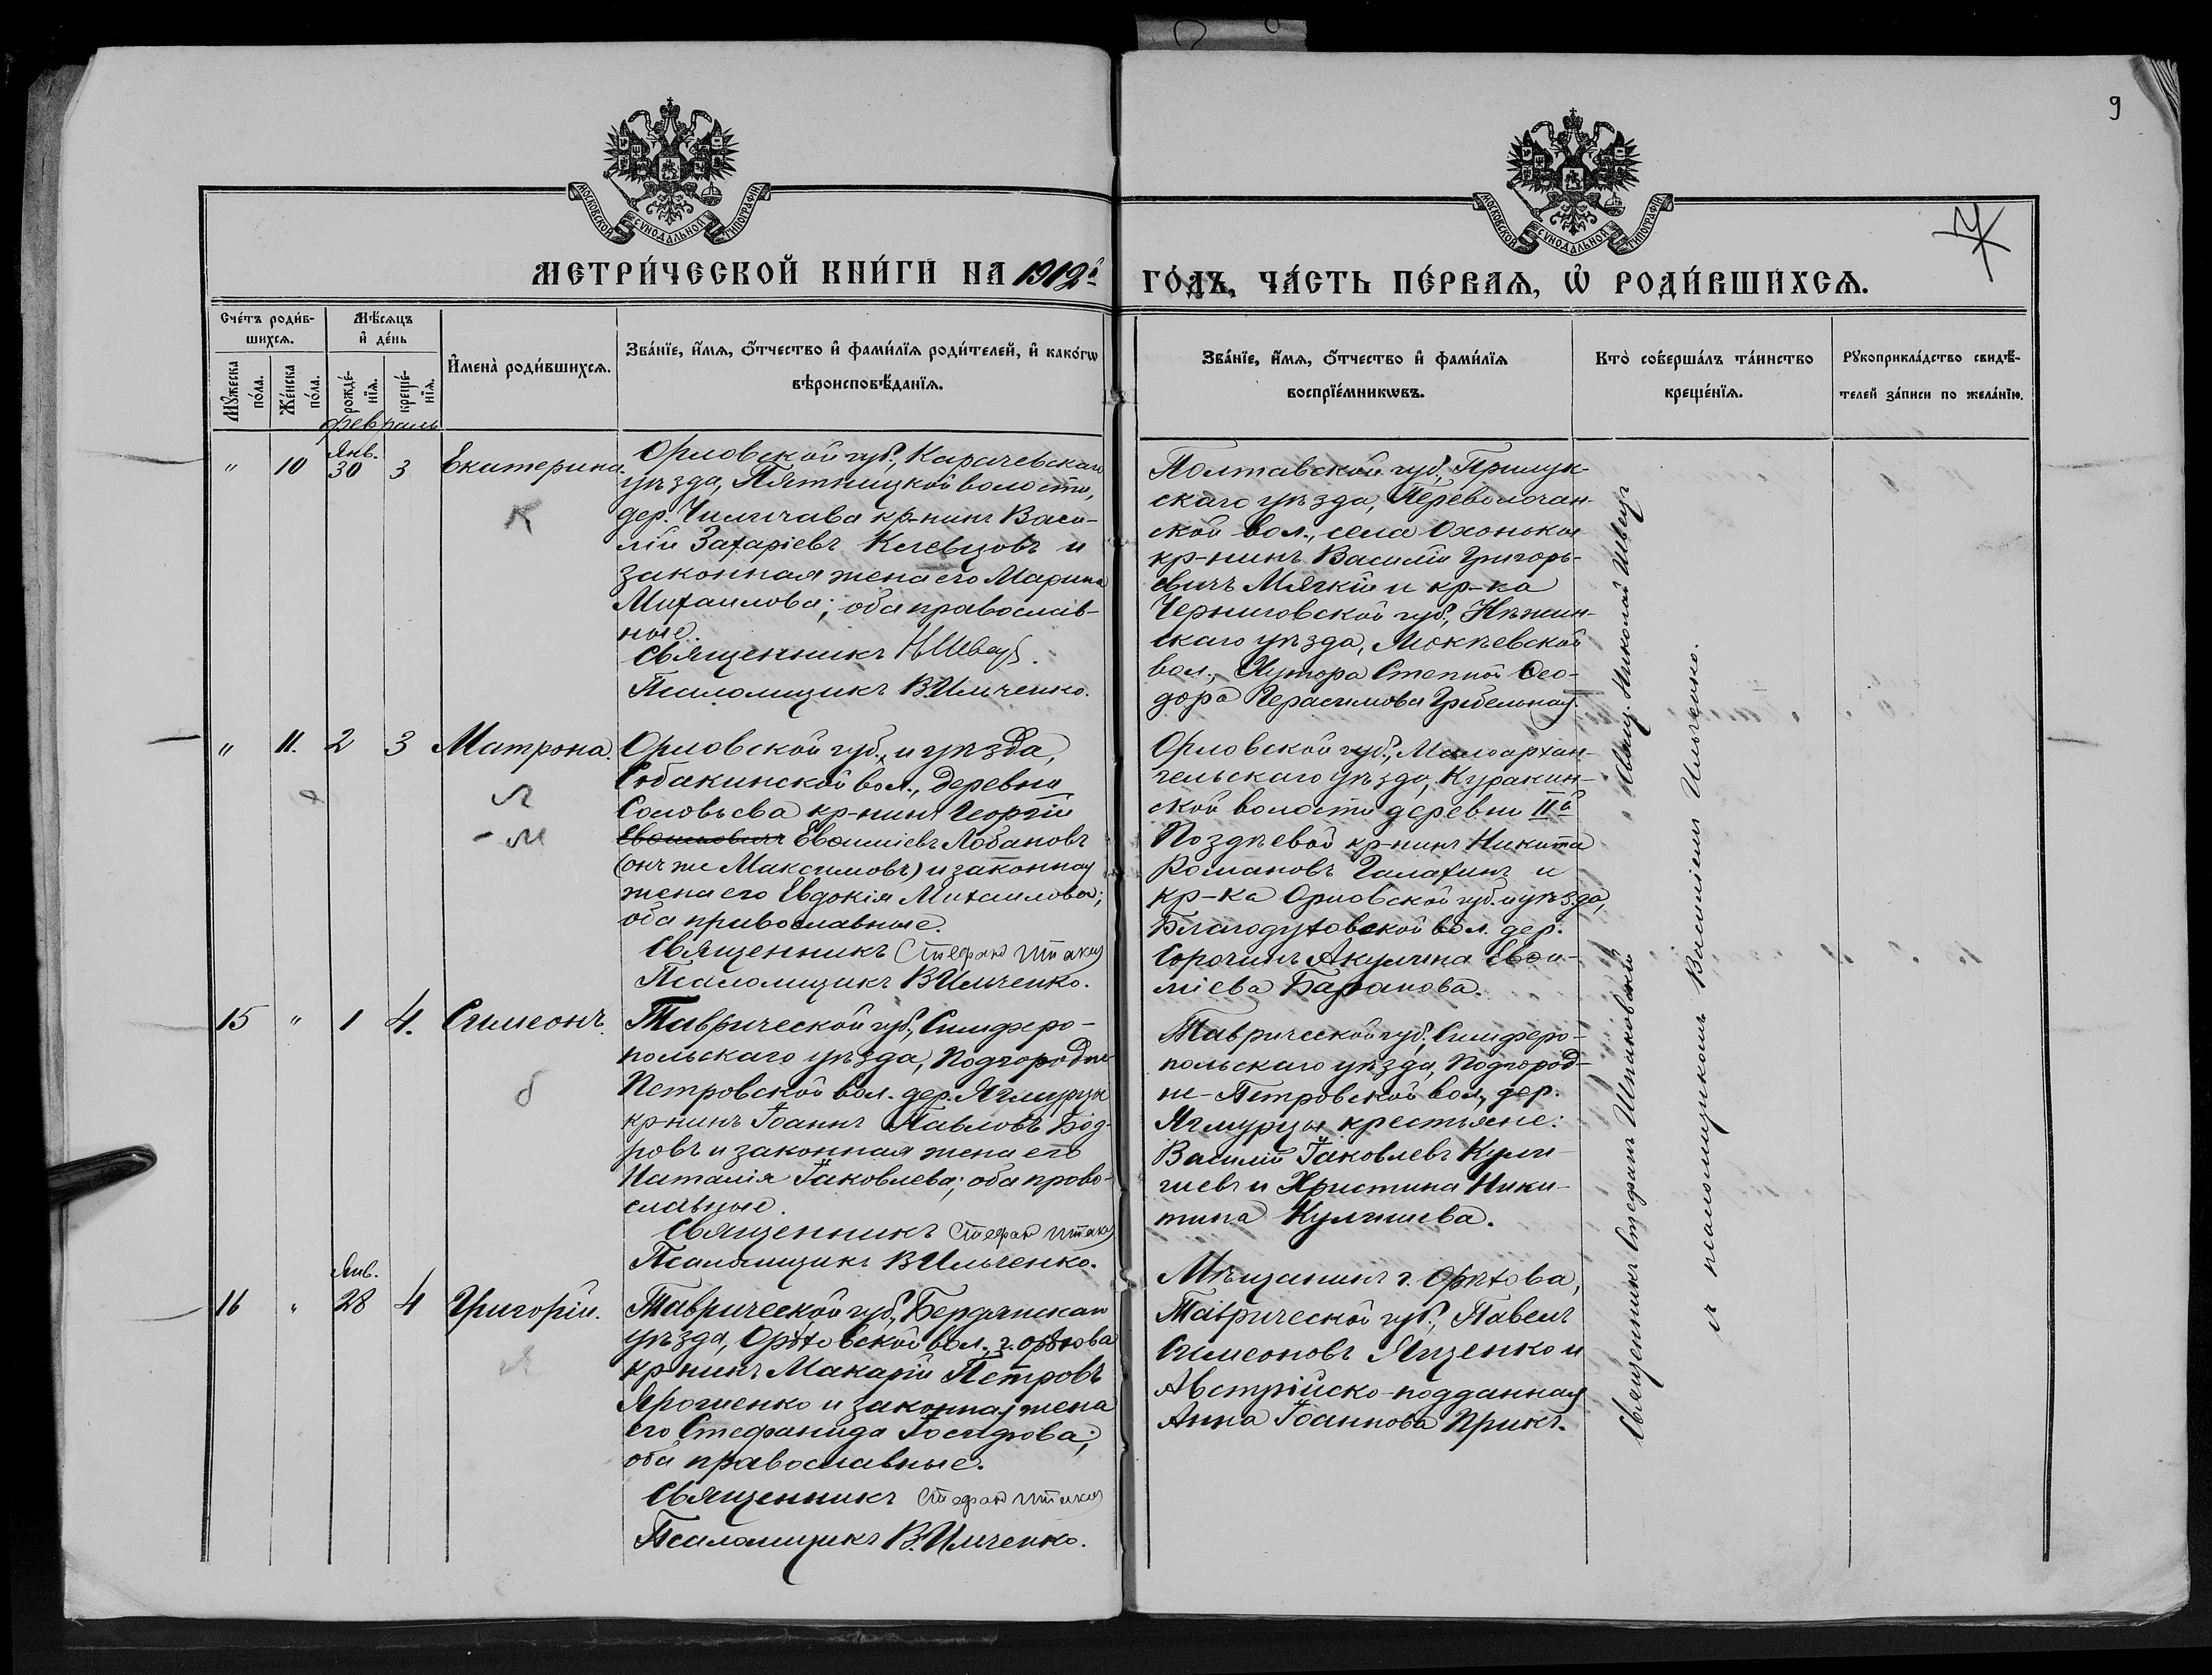 9
МОСКОВСКОЙ СѴНОДАЛЬНОЙ ТИПОГРАФІИ
МОСКОВСКОЙ СѴНОДАЛЬНОЙ ТИПОГРАФІИ
МЕТРИ́ЧЕСКОЙ КНИ́ГИ НА 1912й
ГО́ДЪ, ЧА́СТЬ ПЕ́РВАѦ, Ѽ РОДИ́ВШИХСѦ.
Сче́тъ роди́в-
шихсѧ.
Мꙋ́жеска по́ла.
Же́нска по́ла.
Мѣ́сѧцъ и҆ де́нь
рожде́-
нїѧ.
креще́-
нїѧ.
И҆мена̀ роди́вшихсѧ.
Зва́нїе, и҆́мѧ, ѻ҆́тчество и҆ фами́лїѧ роди́телей, и҆ како́гѡ
вѣроисповѣ́данїѧ.
Зва́нїе, и҆́мѧ, ѻ҆́тчество и҆ фами́лїѧ
воспрїе́мникѡвъ.
Кто̀ соверша́лъ та́инство
креще́нїѧ.
Рꙋкоприкла́дство свидѣ́-
телей за́писи по жела́нїю.
февраль
" 10 Янв. 30 3 Екатерина.
К
Орловской губ., Карачевскаго
уѣзда, Пятницкой волости,
дер. кр-нинъ Васи-
лій Захаріевъ Клевцовъ и
законная жена его Марина
Михаилова; оба православ-
ные.
Священникъ Н Швец.
Псаломщикъ В.Ильченко.
Полтавской губ., Прилук-
скаго уѣзда, Переволочан-
ской вол., села
кр-нинъ Василій Григорь-
евичъ Мягкій и кр-ка
Черниговской губ., Нѣжин-
скаго уѣзда, Мокіевской
вол., Хутора Степной Ѳео-
дора Герасимова
" 11. 2 3 Матрона.
Л
- М
Орловской губ., и уѣзда,
Собакинской вол., деревни
Соловьева кр-нинъ Георгій
Евѳиміевъ Лобановъ
(онъ же Максимовъ) и законная
жена его Евдокія Михаилова;
оба православные.
Священникъ Стефан
Псаломщикъ В Ильченко.
Орловской губ., Малоархан-
гельскаго уѣзда, Куракин-
ской волости деревни IIй
Поздѣевой кр-нинъ Никита
Романовъ Галахинъ и
кр-ка Орловской губ. и уѣзда,
Благодуховской вол. дер.
Сорочинъ Акулина Евѳи-
міева Баранова.
15 " 1 4. Симеонъ.
б
Таврической губ., Симферо-
польскаго уѣзда, Подгородне-
Петровской вол. дер. Ягмурцы
кр-нинъ Іоаннъ Павловъ Бод-
ровъ и законная жена его
Наталія Іаковлева; оба право-
славные.
Священникъ Стефан
Псаломщикъ В Ильченко.
Таврической губ., Симферо-
польскаго уѣзда, Подгород-
не-Петровской вол., дер.
Ягмурцы крестьяне:
Василій Іаковлевъ Кули-
гиевъ и Христина Ники-
тина
16 " Янв. 28 4 Григорій.
Я
Таврической губ., Бердянскаго
уѣзда, Орѣховской вол., г. Орѣхова
кр-нинъ Макарій Петровъ
Ярошенко и законная жена
его Стефанида Іосифова;
оба православные.
Священникъ Стефан
Псаломщикъ В.Ильченко.
Мѣщанинъ г. Орѣхова,
Таврической губ., Павелъ
Симеоновъ Яценко и
Австрійско-подданная
Анна Іоаннова Прикъ.
Свящ. Николай Швец
Священникъ Стефанъ Шпаковскій
съ псаломщикомъ Василіемъ Ильченко.